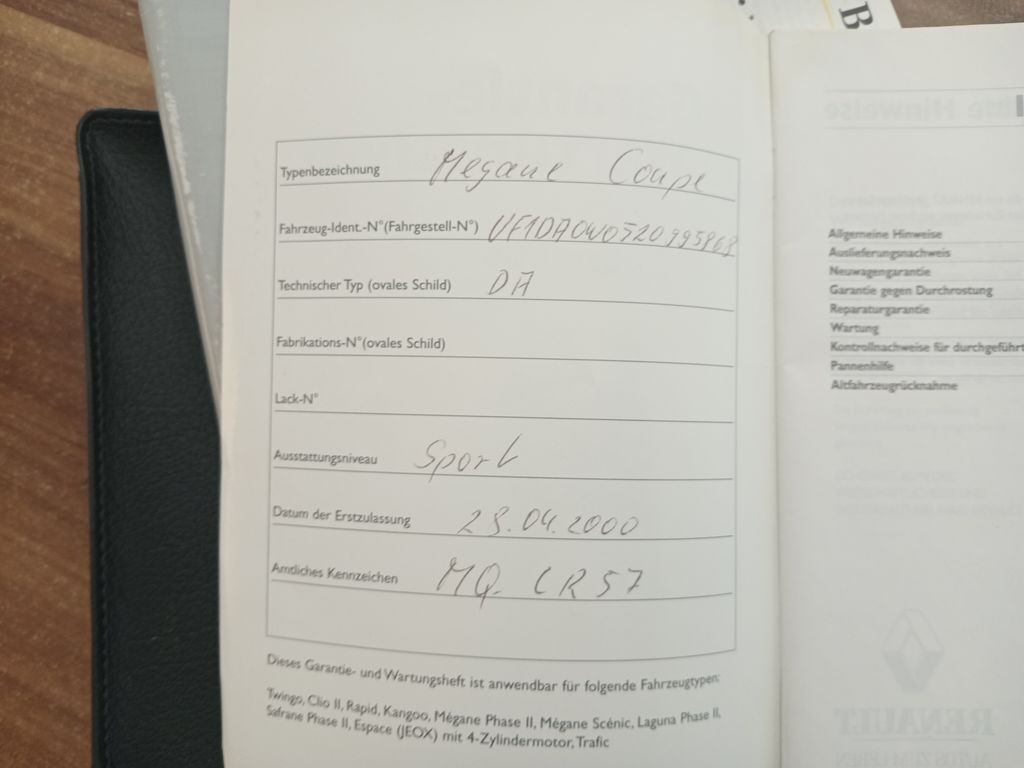 B
Typenbezeichnung Megane Coupe
Fahrzeug-Ident.-N°(Fahrgestell-N°)
Technischer Typ (ovales Schild) DA
Fabrikations-N°(ovales Schild)
Lack-N°
Ausstattungsniveau Sport
Datum der Erstzulassung 28.04.2000
Amtliches Kennzeichen MQ CR57
Dieses Garantie- und Wartungsheft ist anwendbar für folgende Fahrzeugtypen:
Twingo, Clio II, Rapid, Kangoo, Mégane Phase II, Mégane Scénic, Laguna Phase II,
Safrane Phase II, Espace (JEOX) mit 4-Zylindermotor, Trafic
Allgemeine Hinweise
Auslieferungsnachweis
Neuwagengarantie
Garantie gegen Durchrostung
Reparaturgarantie
Wartung
Kontrollnachweise für durchgeführt
Pannenhilfe
Altfahrzeugrücknahme
RENAULT
AUTOS ZUM LEBEN